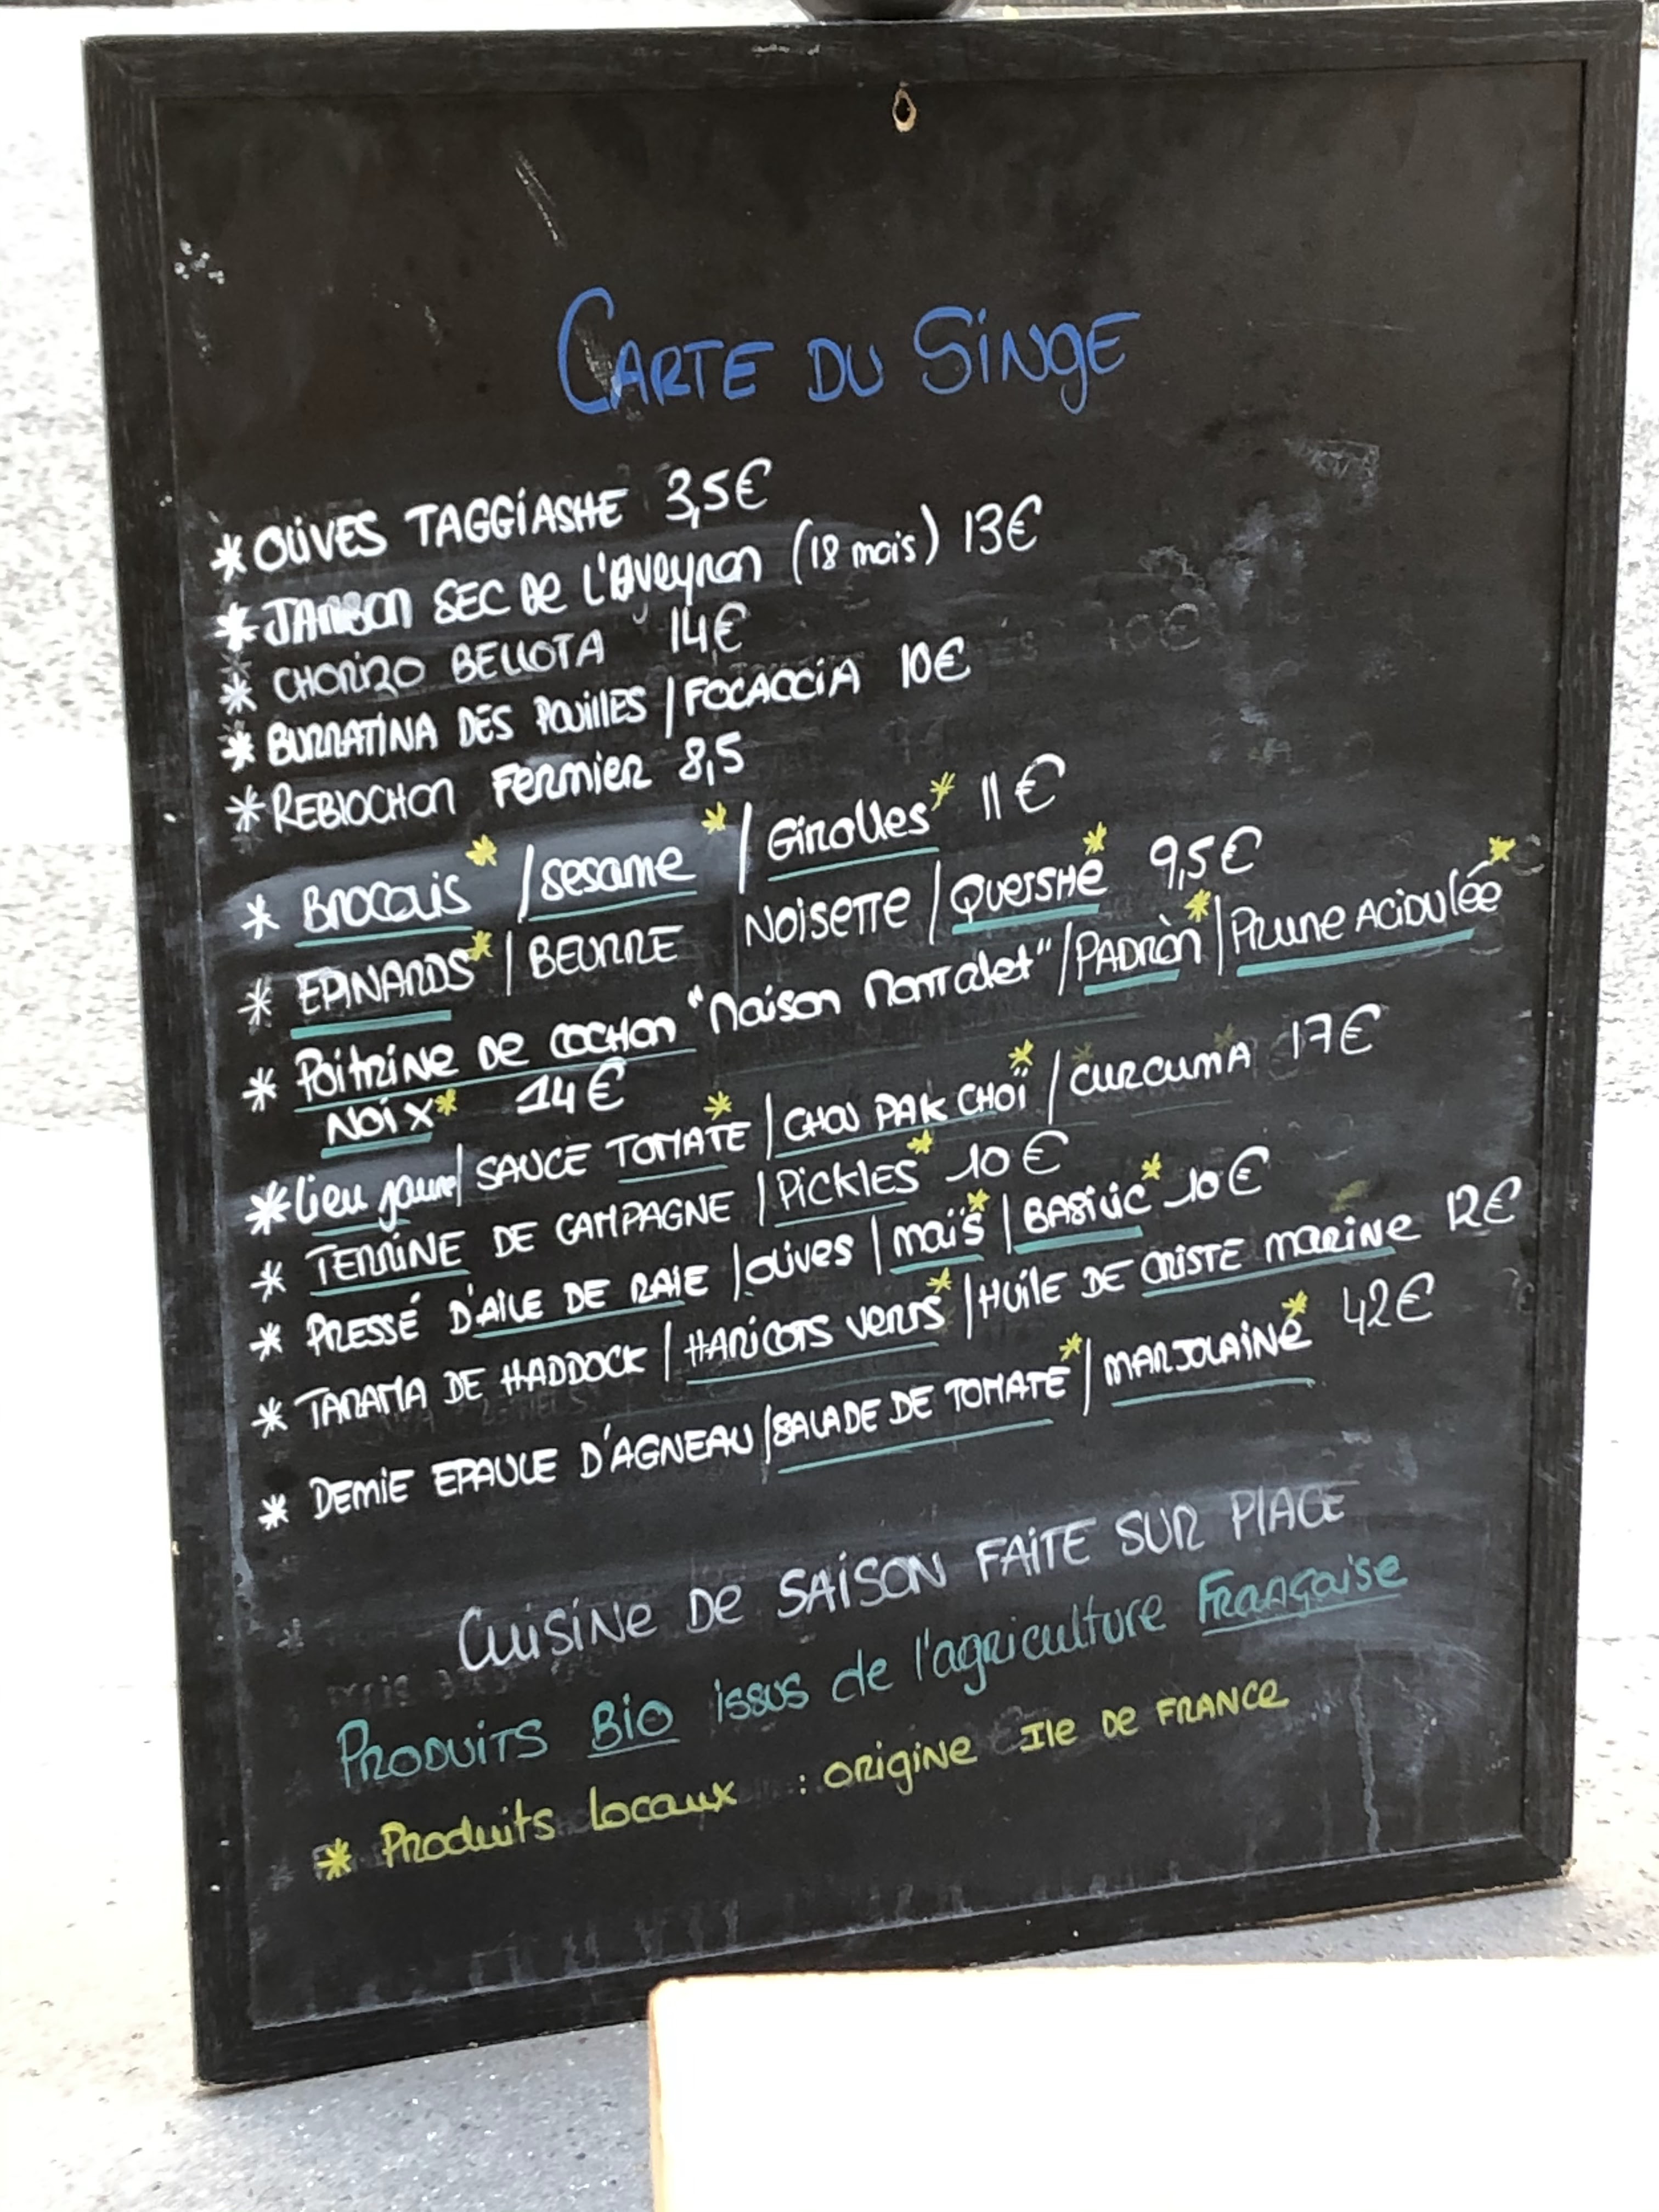 CARTE DU SINGE
* OLIVES TAGGIASHE 3,5€
* JAMBON SEC DE L'AVEYRON (18 mois) 13€
* CHORIZO BELLOTA 14€
* BURRATINA DES POUILLES / FOCACCIA 10€
* REBLOCHON FERMIER 8,5
* BROCOLIS * / SESAME * / GIROLLES * 11€
* EPINARDS * / BEURRE NOISETTE / QUETSHE * 9,5€
* POITRINE DE COCHON "MAISON MONTALET" / PADRÒN * / PRUNE ACIDULÉE *
NOIX * 14€
* LIEU JAUNE / SAUCE TOMATE * / CHOU PAK CHOÏ * / CURCUMA 17€
* TERRINE DE CAMPAGNE / PICKLES * 10€
* PRESSÉ D'AILE DE RAIE / OLIVES / MAÏS * / BASILIC * 10€
* TARAMA DE HADDOCK / HARICOTS VERTS * / HUILE DE CRISTE MARINE 12€
* DEMIE EPAULE D'AGNEAU / SALADE DE TOMATE * / MARJOLAINE * 42€
CUISINE DE SAISON FAITE SUR PLACE
PRODUITS BIO issus de l'agriculture FRANÇAISE
* PRODUITS LOCAUX : ORIGINE ILE DE FRANCE